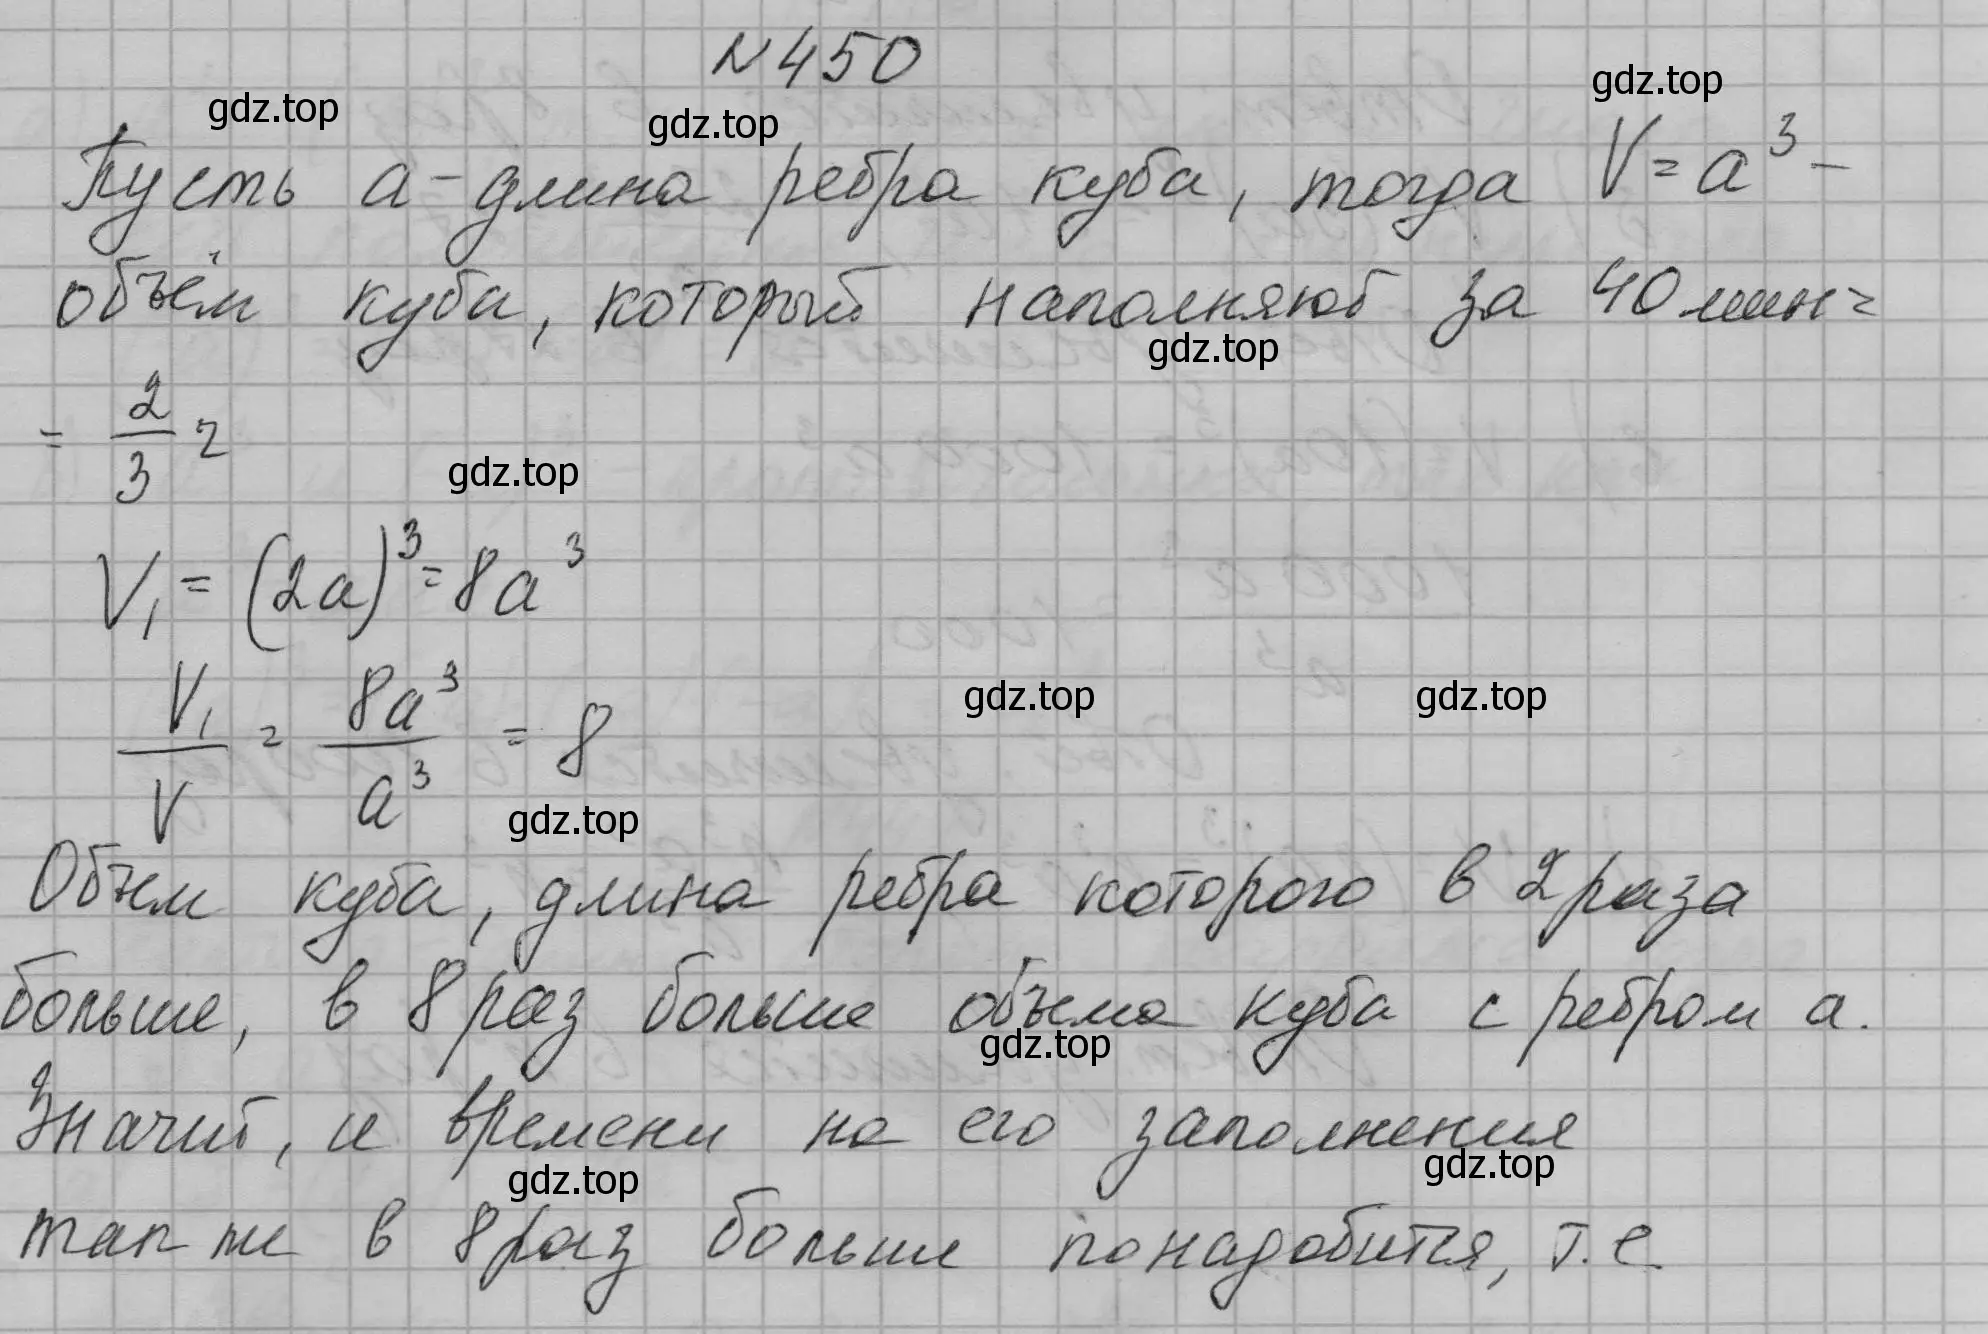 №450
gdz.top
gdz.top
gdz.top
Пусть a - длина ребра куба, тогда V = a³ -
объём куба, который наполняют за 40 мин =
gdz.top
= 2/3 ч
gdz.top
V₁ = (2a)³ = 8a³
V₁/V = 8a³/a³ = 8
gdz.top
gdz.top
gdz.top
Объем куба, длина ребра которого в 2 раза
больше, в 8 раз больше объема куба с ребром a.
gdz.top
Значит, и времени на его заполнения
gdz.top
gdz.top
так же в 8 раз больше понадобится, т.е.